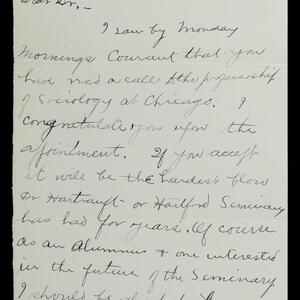 Dear Dr. –
I saw by Monday
Mornings Courant that you
had rec'd a call to the professorship
of Sociology at Chicago. I
congratulate you upon the
appointment. If you accept
it will be the hardest blow
Dr Hartranft or Hartford Seminary
has had for years. Of course
as an Alumnus & one interested
in the future of the Seminary
I should be